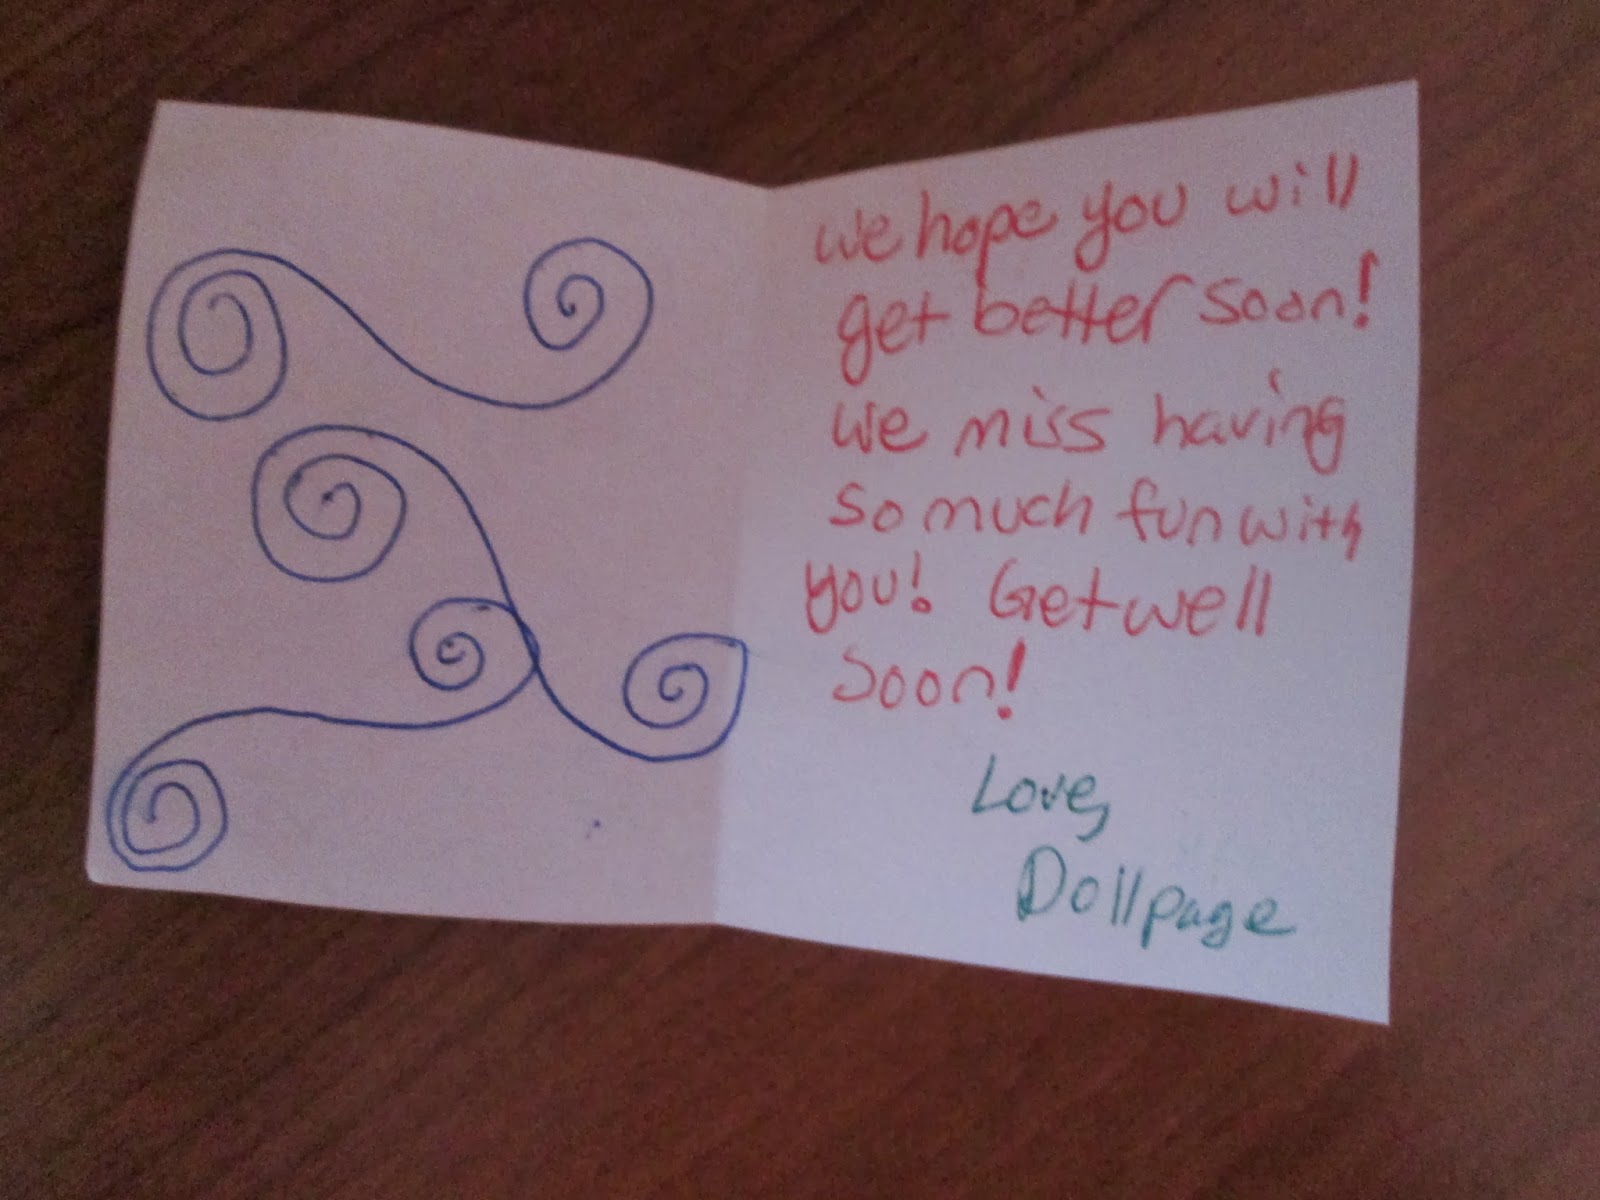 We hope you will
get better soon!
We miss having
so much fun with
you! Get well
soon!
Love,
Dollpage